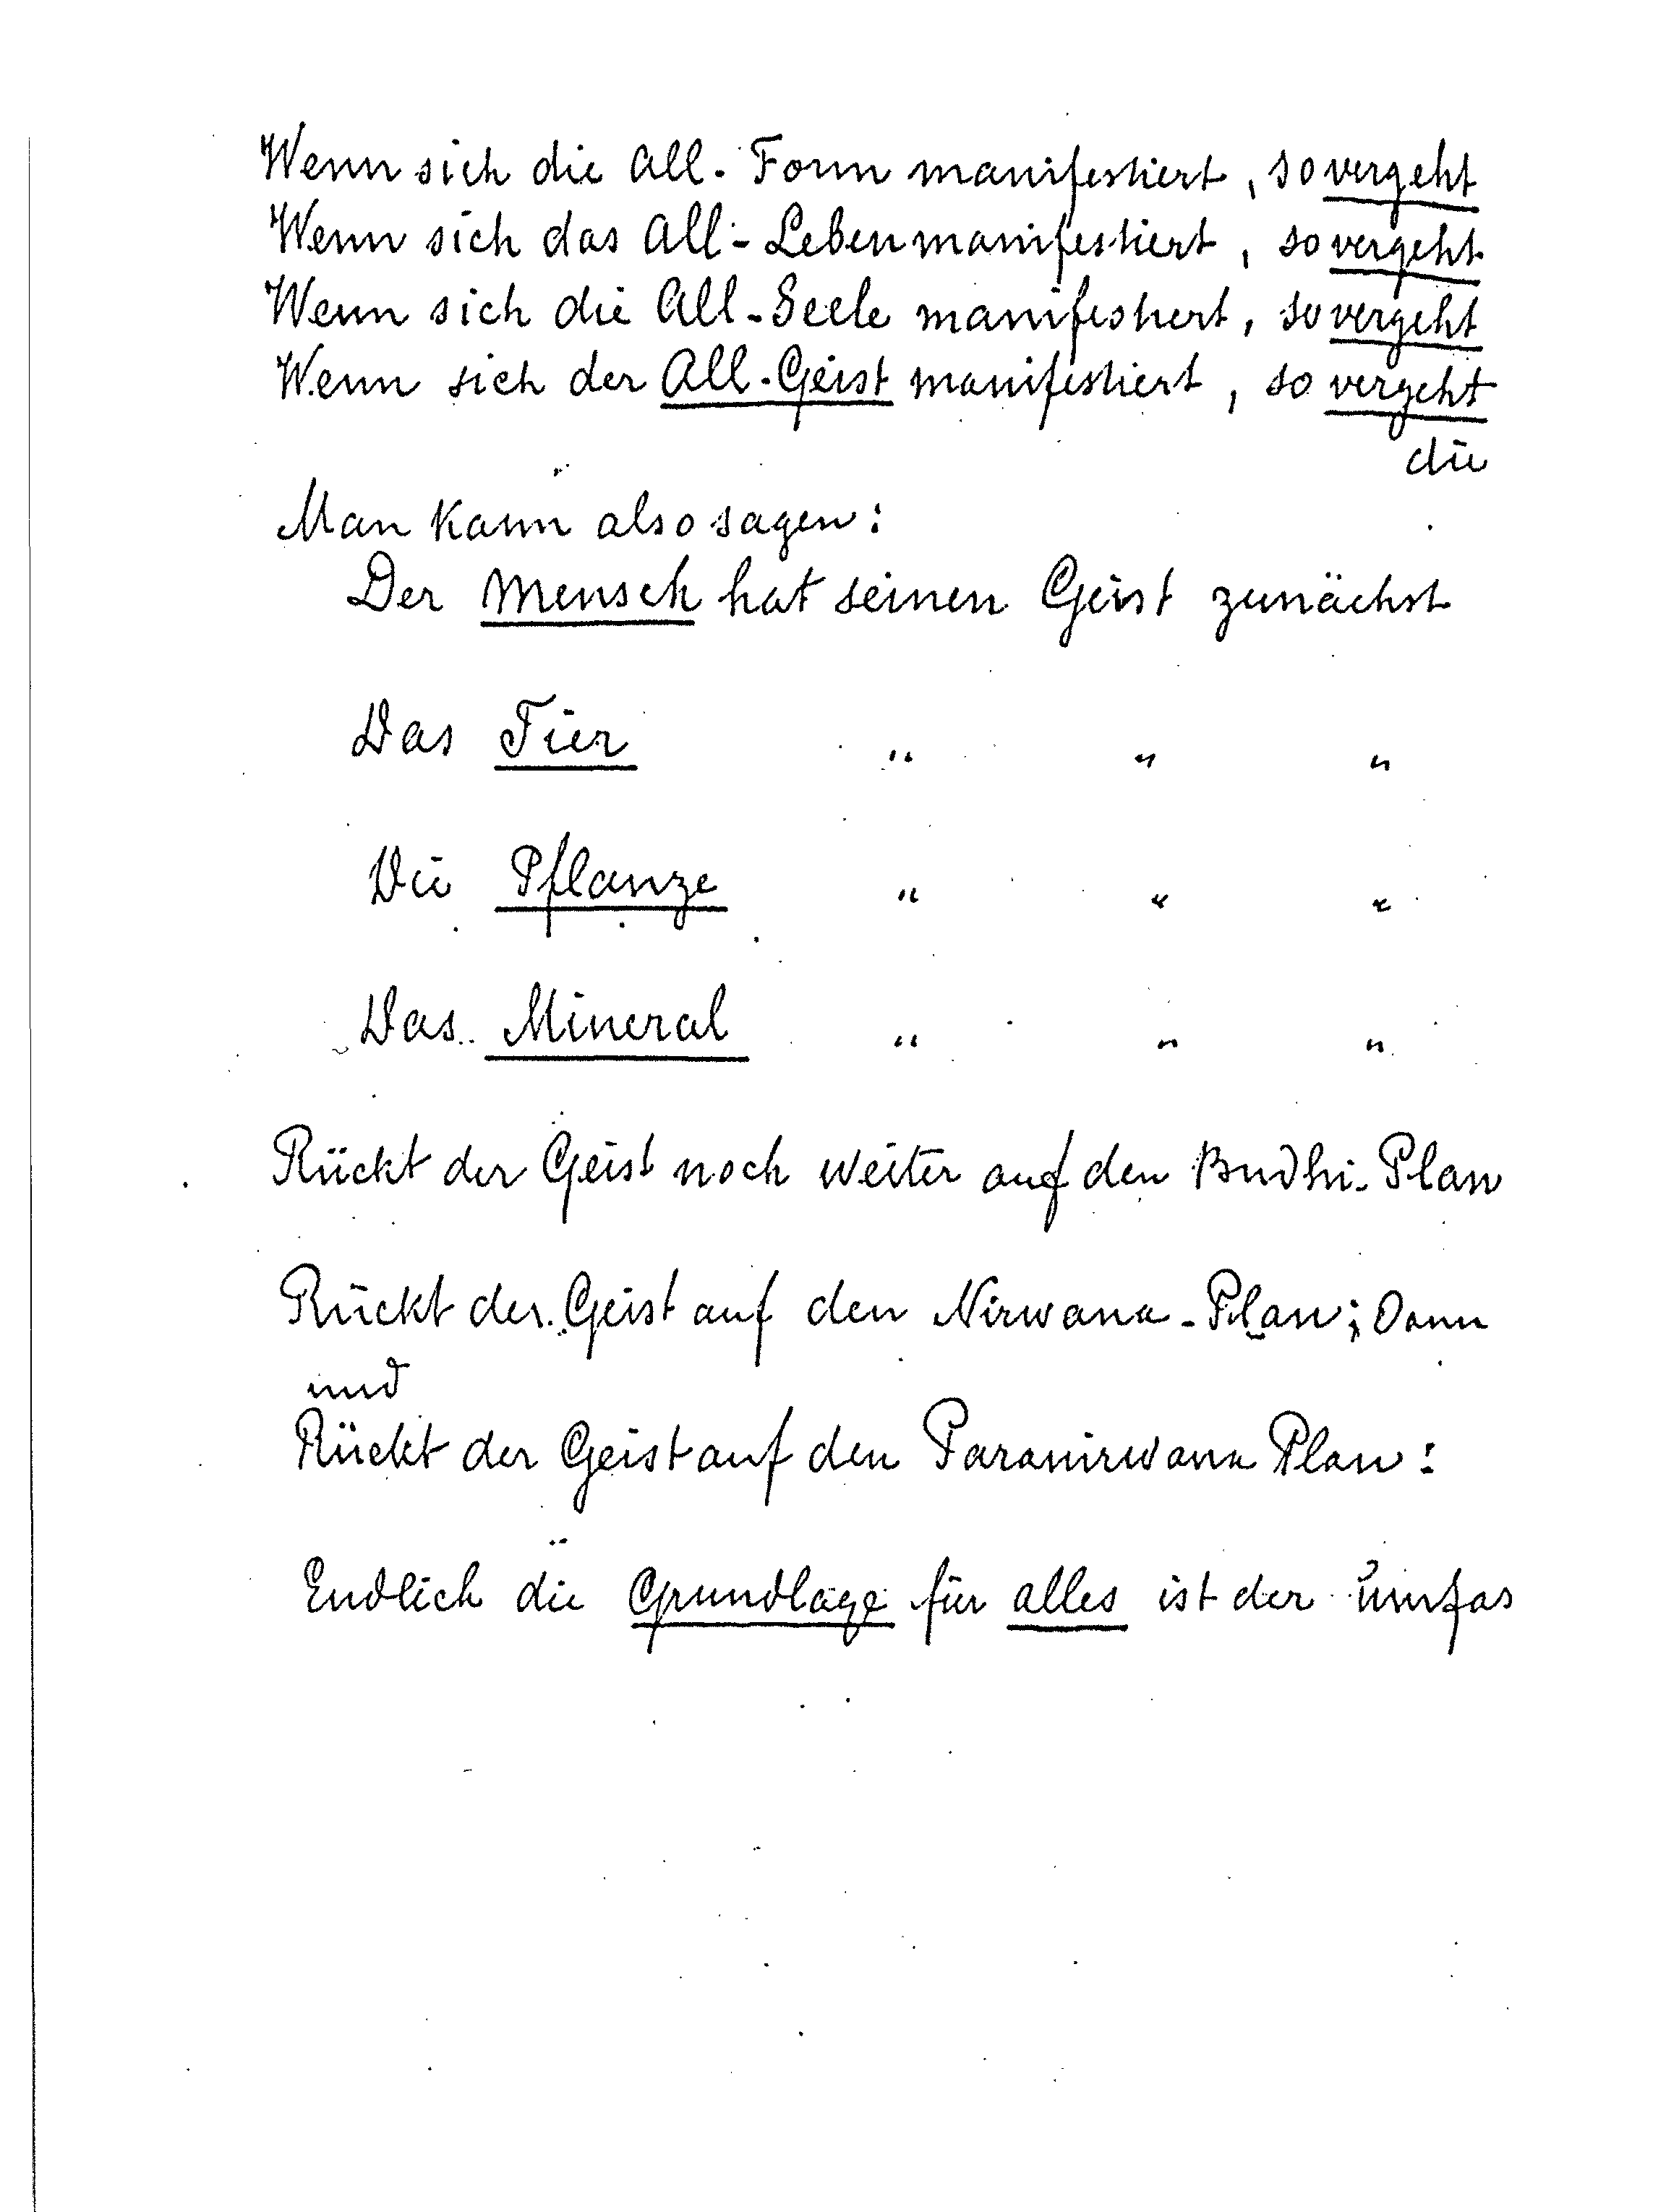 Wenn sich die All-Form manifestiert, so vergeht
Wenn sich das All-Leben manifestiert, so vergeht
Wenn sich die All-Seele manifestiert, so vergeht
Wenn sich der All-Geist manifestiert, so vergeht
die
Man kann also sagen:
Der Mensch hat seinen Geist zunächst
Das Tier " " "
Die Pflanze " " "
Das Mineral " " "
Rückt der Geist noch weiter auf den Budhi-Plan
Rückt der Geist auf den Nirwana-Plan; Dann
und
Rückt der Geist auf den Paranirwana Plan:
Endlich die Grundlage für alles ist der umfas